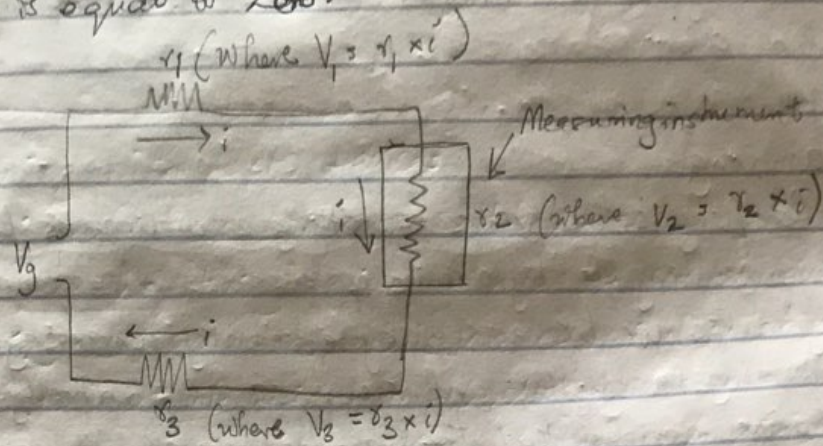 is equal to zero.
r1 (where V1 = r1 × i)
i
Measuring instrument
i
r2 (where V2 = r2 × i)
Vg
i
r3 (where V3 = r3 × i)